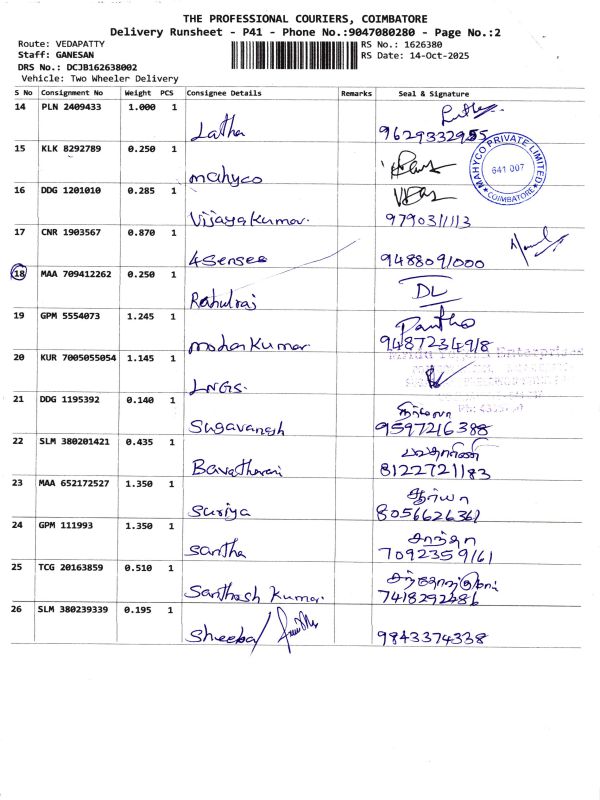 THE PROFESSIONAL COURIERS, COIMBATORE
Delivery Runsheet - P41 - Phone No.:9047080280 - Page No.:2
Route: VEDAPATTY
RS No.: 1626380
Staff: GANESAN
RS Date: 14-Oct-2025
DRS No.: DCJB162638002
Vehicle: Two Wheeler Delivery
S No Consignment No Weight PCS Consignee Details Remarks Seal & Signature
14 PLN 2409433 1.000 1
Latha 9629332955
15 KLK 8292789 0.250 1
Mahyco
MAHYCO PRIVATE LIMITED
641 007
COIMBATORE
16 DDG 1201010 0.285 1
Vijayakumar. 9790311113
17 CNR 1903567 0.870 1
4Sensee 9488091000
18 MAA 709412262 0.250 1 DL
Rahulraj
19 GPM 5554073 1.245 1
Mohankumar. 9487234918
20 KUR 7005055054 1.145 1
Enterprises
LNGS.
21 DDG 1195392 0.140 1 நிர்மலா
Sugavanesh 9597216388
22 SLM 380201421 0.435 1
Bavatharani 8122721183
23 MAA 652172527 1.350 1
Suriya 8056626361
24 GPM 111993 1.350 1 சாந்தா
Santha 7092359161
25 TCG 20163859 0.510 1
Santhosh Kumar. 7418292486
26 SLM 380239339 0.195 1
Sheeba 9843374338